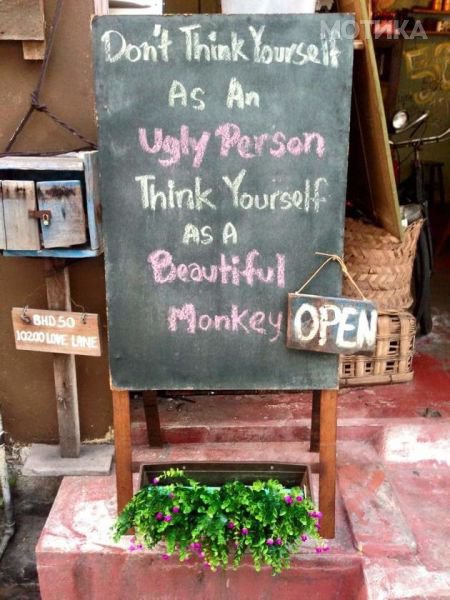 МОТИКА
Don't Think Yourself
As An
Ugly Person
Think Yourself
As A
Beautiful
Monkey
OPEN
BHD 50
10200 LOVE LANE